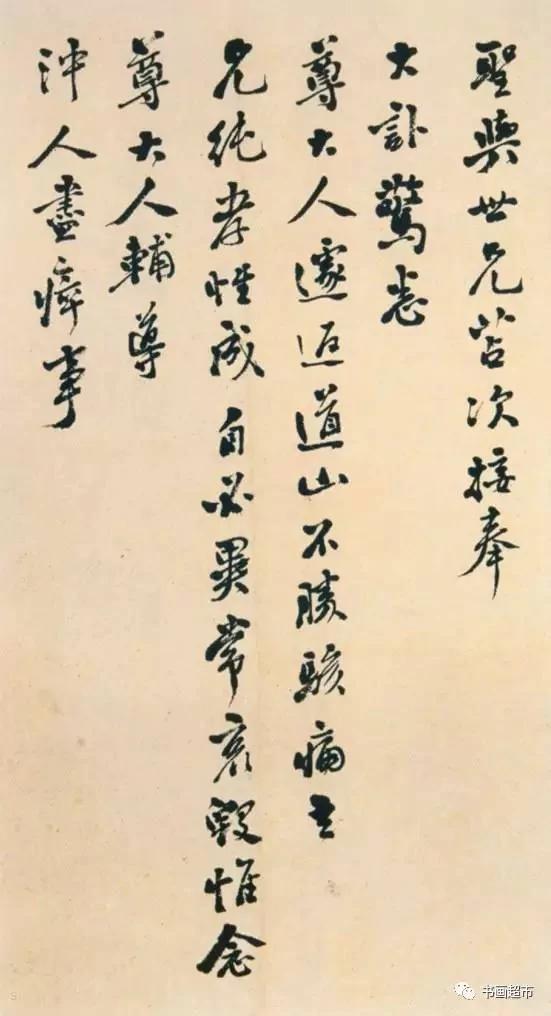 聖與世兄苫次接奉
大訃驚悉
尊大人遽返道山不勝駭痛
兄純孝性成自必異常哀毀惟念
尊大人輔導
沖人盡瘁事
书画超市